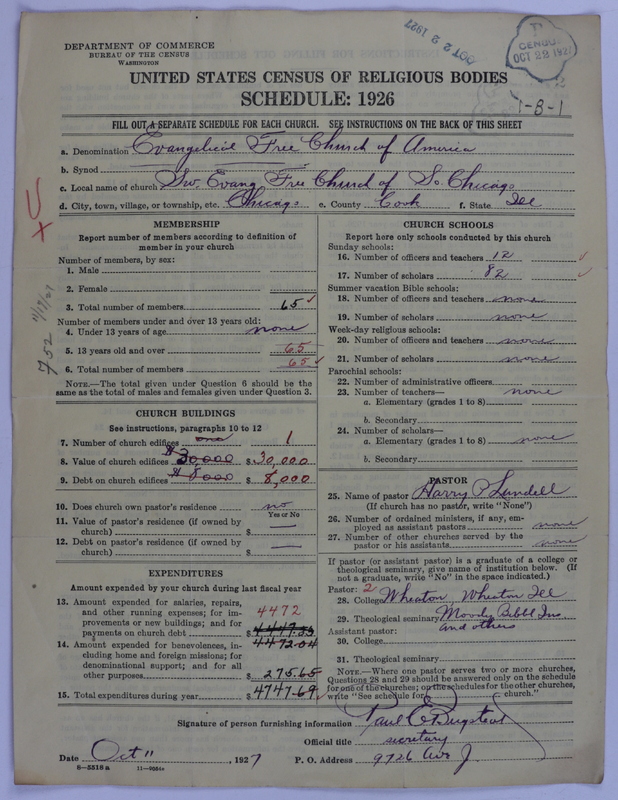 DEPARTMENT OF COMMERCE
BUREAU OF THE CENSUS
WASHINGTON
OCT 22 1927
CENSUS
OCT 22 1927
1-8-1
UNITED STATES CENSUS OF RELIGIOUS BODIES
SCHEDULE: 1926
FILL OUT A SEPARATE SCHEDULE FOR EACH CHURCH. SEE INSTRUCTIONS ON THE BACK OF THIS SHEET
a. Denomination Evangelical Free Church of America
b. Synod
c. Local name of church Sw. Evang Free Church of So. Chicago
d. City, town, village, or township, etc. Chicago e. County Cook f. State Ill
MEMBERSHIP
Report number of members according to definition of
member in your church
Number of members, by sex:
1. Male
2. Female
3. Total number of members 65
Number of members under and over 13 years old:
4. Under 13 years of age none
5. 13 years old and over 65
6. Total number of members 65
NOTE.—The total given under Question 6 should be the
same as the total of males and females given under Question 3.
752 11/17/27
CHURCH BUILDINGS
See instructions, paragraphs 10 to 12
7. Number of church edifices one 1
8. Value of church edifices $30,000 $ 30,000
9. Debt on church edifices $8000 $ 8,000
10. Does church own pastor's residence no
Yes or No
11. Value of pastor's residence (if owned by
church) $ —
12. Debt on pastor's residence (if owned by
church) $ —
EXPENDITURES
Amount expended by your church during last fiscal year
13. Amount expended for salaries, repairs,
and other running expenses; for im-
provements or new buildings; and for
payments on church debt $
4472
14. Amount expended for benevolences, in-
cluding home and foreign missions; for
denominational support; and for all
other purposes $ 275.65
4472.04
15. Total expenditures during year $ 4747.69
CHURCH SCHOOLS
Report here only schools conducted by this church
Sunday schools:
16. Number of officers and teachers 12
17. Number of scholars 82
Summer vacation Bible schools:
18. Number of officers and teachers none
19. Number of scholars none
Week-day religious schools:
20. Number of officers and teachers none
21. Number of scholars none
Parochial schools:
22. Number of administrative officers
23. Number of teachers— none
a. Elementary (grades 1 to 8)
b. Secondary
24. Number of scholars—
a. Elementary (grades 1 to 8) none
b. Secondary
PASTOR
25. Name of pastor Harry P Lundell
(If church has no pastor, write "None")
26. Number of ordained ministers, if any, em-
ployed as assistant pastors none
27. Number of other churches served by the
pastor or his assistants none
If pastor (or assistant pastor) is a graduate of a college or
theological seminary, give name of institution below. (If
not a graduate, write "No" in the space indicated.)
Pastor: 2
28. College Wheaton, Wheaton Ill
29. Theological seminary Moody Bibel Ins.
and others
Assistant pastor:
30. College
31. Theological seminary
NOTE.—Where one pastor serves two or more churches,
Questions 28 and 29 should be answered only on the schedule
for one of the churches; on the schedules for the other churches,
write "See schedule for church."
Signature of person furnishing information Paul
Official title secretary
Date Oct 11, 1927 P. O. Address 9726 Ave J.
8-5318 a 11-9054a